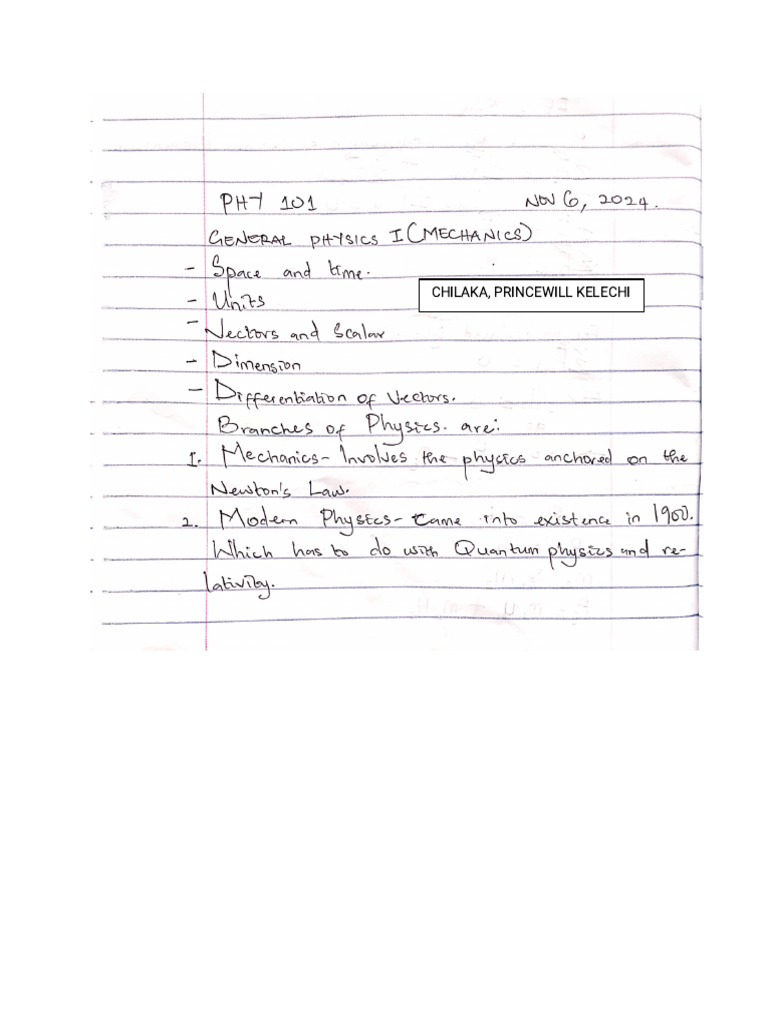 PHY 101 NOV 6, 2024.
GENERAL PHYSICS I (MECHANICS)
- Space and time.
- Units
CHILAKA, PRINCEWILL KELECHI
- Vectors and Scalar
- Dimension
- Differentiation of Vectors.
Branches of Physics. are:
1. Mechanics - Involves the physics anchored on the
Newton's Law.
2. Modern Physics - Came into existence in 1900.
Which has to do with Quantum physics and re-
lativity.